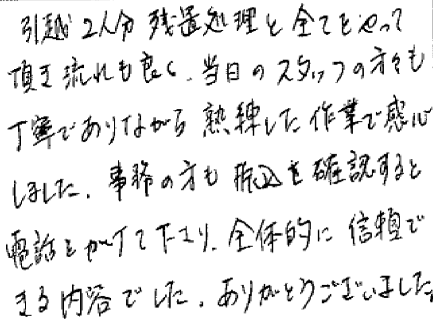 引越2人分 残置処理と全てをやって
頂き流れも良く、当日のスタッフの方々も
丁寧でありながら熟練した作業で感心
しました。事務の方も振込を確認すると
電話をかけて下さり、全体的に信頼で
きる内容でした。ありがとうございました。